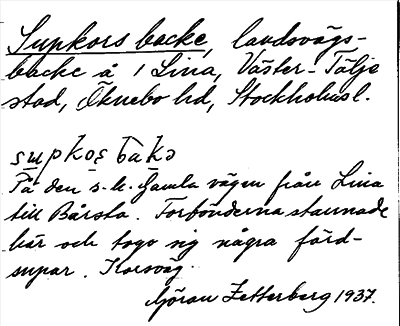 Supkors backe, landsvägs-
backe å 1 Lina, Väster-Tälje
stad, Öknebo hd, Stockholmsl.
supkos bakə
På den s.k. Gamla vägen från Lina
till Bårsta. Forbönderna stannade
här och togo sig några färd-
supar. Korsväg.
Göran Zetterberg 1937.